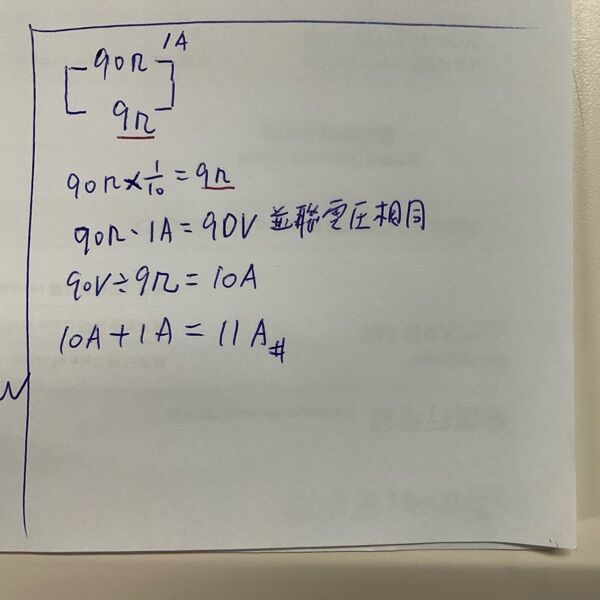 90Ω 1A
9Ω
90Ω × 1/10 = 9Ω
90Ω · 1A = 90V 並聯電圧相同
90V ÷ 9Ω = 10A
10A + 1A = 11A#